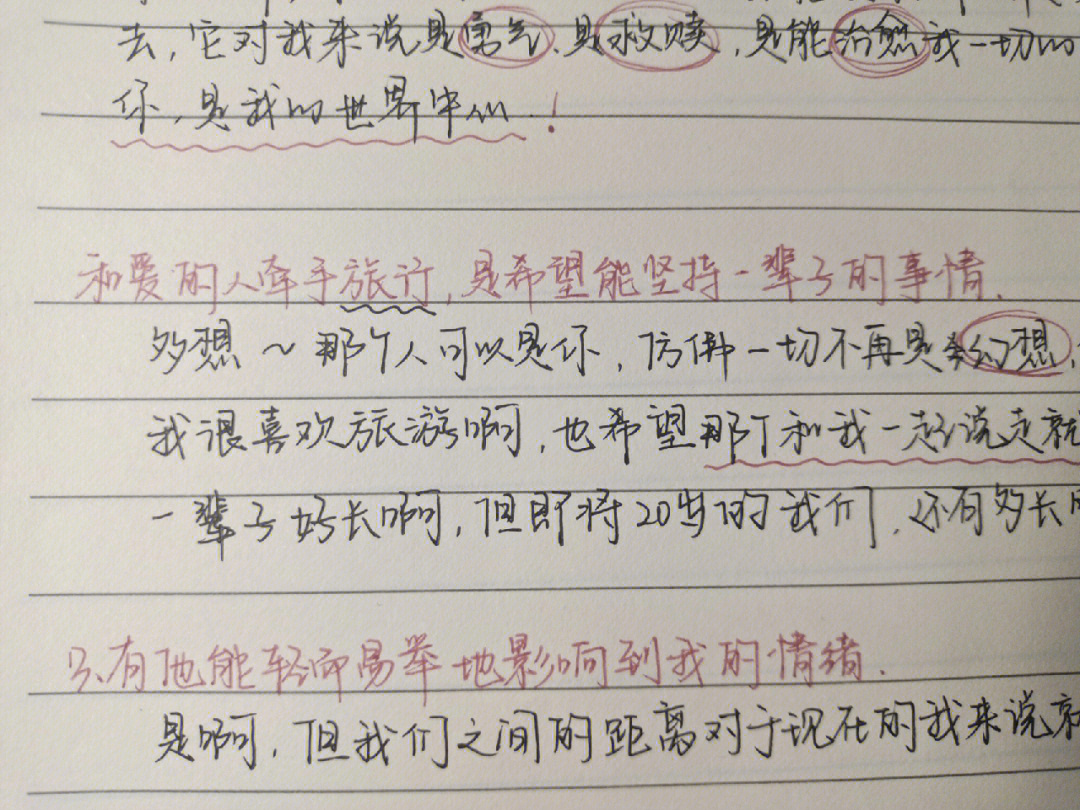 去,它对我来说是勇气、是救赎,是能治愈我一切的
你,是我的世界中心!
和爱的人牵手旅行,是希望能坚持一辈子的事情.
多想~那个人可以是你,仿佛一切不再是幻想,
我很喜欢旅游啊,也希望那个和我一起说走就
一辈子好长啊,但即将20岁的我们,还有多长
3、有他能轻而易举地影响到我的情绪.
是啊,但我们之间的距离对于现在的我来说